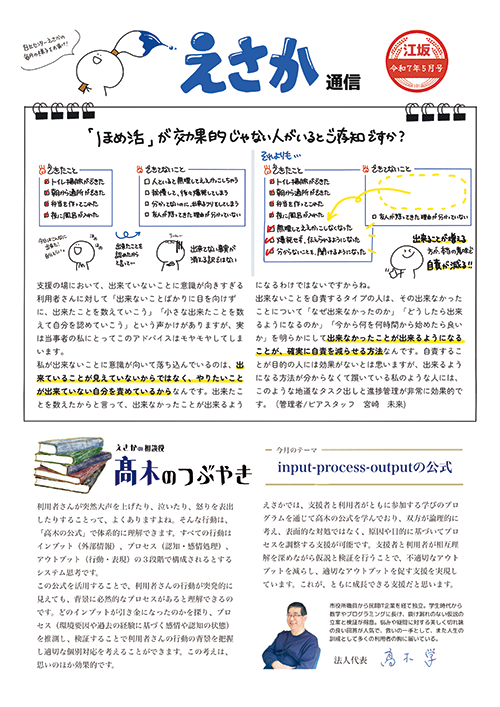 えさか
通信
江坂
令和7年5月号
「ほめ活」が効果的じゃない人がいるとご存知ですか？
できたこと
トイレ掃除ができた
朝から通所ができた
弁当を作ってこれた
夜に風呂が入れた
できないこと
人といると無理してええかっこしちゃう
我慢して、後々爆発してしまう
分かってないのに、出来るフリをしてしまう
友人が怒ってきた理由が分かっていない
それよりも…
できたこと
トイレ掃除ができた
朝から通所ができた
弁当を作ってこれた
夜に風呂が入れた
無理してええかっこしなくなった
爆発せず、伝えられるようになった
分からないことを、聞けるようになった
できないこと
友人が怒ってきた理由が分かっていない
出来たことを
認めたから
と言って…
出来ない事実が
消える訳ではない
出来ることが増える
方が、本当の意味で
自責が減る!!
支援の場において、出来ていないことに意識が向きすぎる
利用者さんに対して「出来ないことばかりに目を向けず
に、出来たことを数えていこう」「小さな出来たことを数
えて自分を認めていこう」という声かけがありますが、実
は当事者の私にとってこのアドバイスはモヤモヤしてしま
います。
私が出来ないことに意識が向いて落ち込んでいるのは、出
来ていることが見えていないからではなく、やりたいこと
が出来ていない自分を責めているからなんです。出来たこ
とを数えたからと言って、出来なかったことが出来るよう
になるわけではないですからね。
出来ないことを自責するタイプの人は、その出来なかった
ことについて「なぜ出来なかったのか」「どうしたら出来
るようになるのか」「今から何を何時間から始めたら良い
か」を明らかにして出来なかったことが出来るようになる
ことが、確実に自責を減らせる方法なんです。自責するこ
とが目的の人には効果がないとは思いますが、出来るよう
になる方法が分からなくて躓いている私のような人には、
このような地道なタスク出しと進捗管理が非常に効果的で
す。（管理者/ピアスタッフ　宮崎　未来）
えさかの相談役
髙木のつぶやき
今月のテーマ
input-process-outputの公式
利用者さんが突然大声を上げたり、泣いたり、怒りを表出
したりすることって、よくありますよね。そんな行動は、
「高木の公式」で体系的に理解できます。すべての行動は
インプット（外部情報）、プロセス（認知・感情処理）、
アウトプット（行動・表現）の３段階で構成されるとする
システム思考です。
この公式を活用することで、利用者さんの行動が突発的に
見えても、背景に必然的なプロセスがあると理解できるの
です。どのインプットが引き金になったのかを探り、プロ
セス（環境要因や過去の経験に基づく感情や認知の状態）
を推測し、検証することで利用者さんの行動の背景を把握
し適切な個別対応を考えることができます。この考えは、
思いのほか効果的です。
えさかでは、支援者と利用者がともに参加する学びのプロ
グラムを通じて高木の公式を学んでおり、双方が論理的に
考え、表面的な対処ではなく、原因や目的に基づいてプロ
セスを調整する支援が可能です。支援者と利用者が相互理
解を深めながら仮説と検証を行うことで、不適切なアウト
プットを減らし、適切なアウトプットを促す支援を実現し
ています。これが、ともに成長できる支援だと思います。
市役所職員から民間IT企業を経て独立。学生時代から
数学やプログラミングに長け、抜け漏れのない仮説の
立案と検証が得意。悩みや疑問に対する美しく切れ味
の良い回答が人気で、救いの一手として、また人生の
訓戒として多くの利用者の胸に届いている。
法人代表　髙木 学